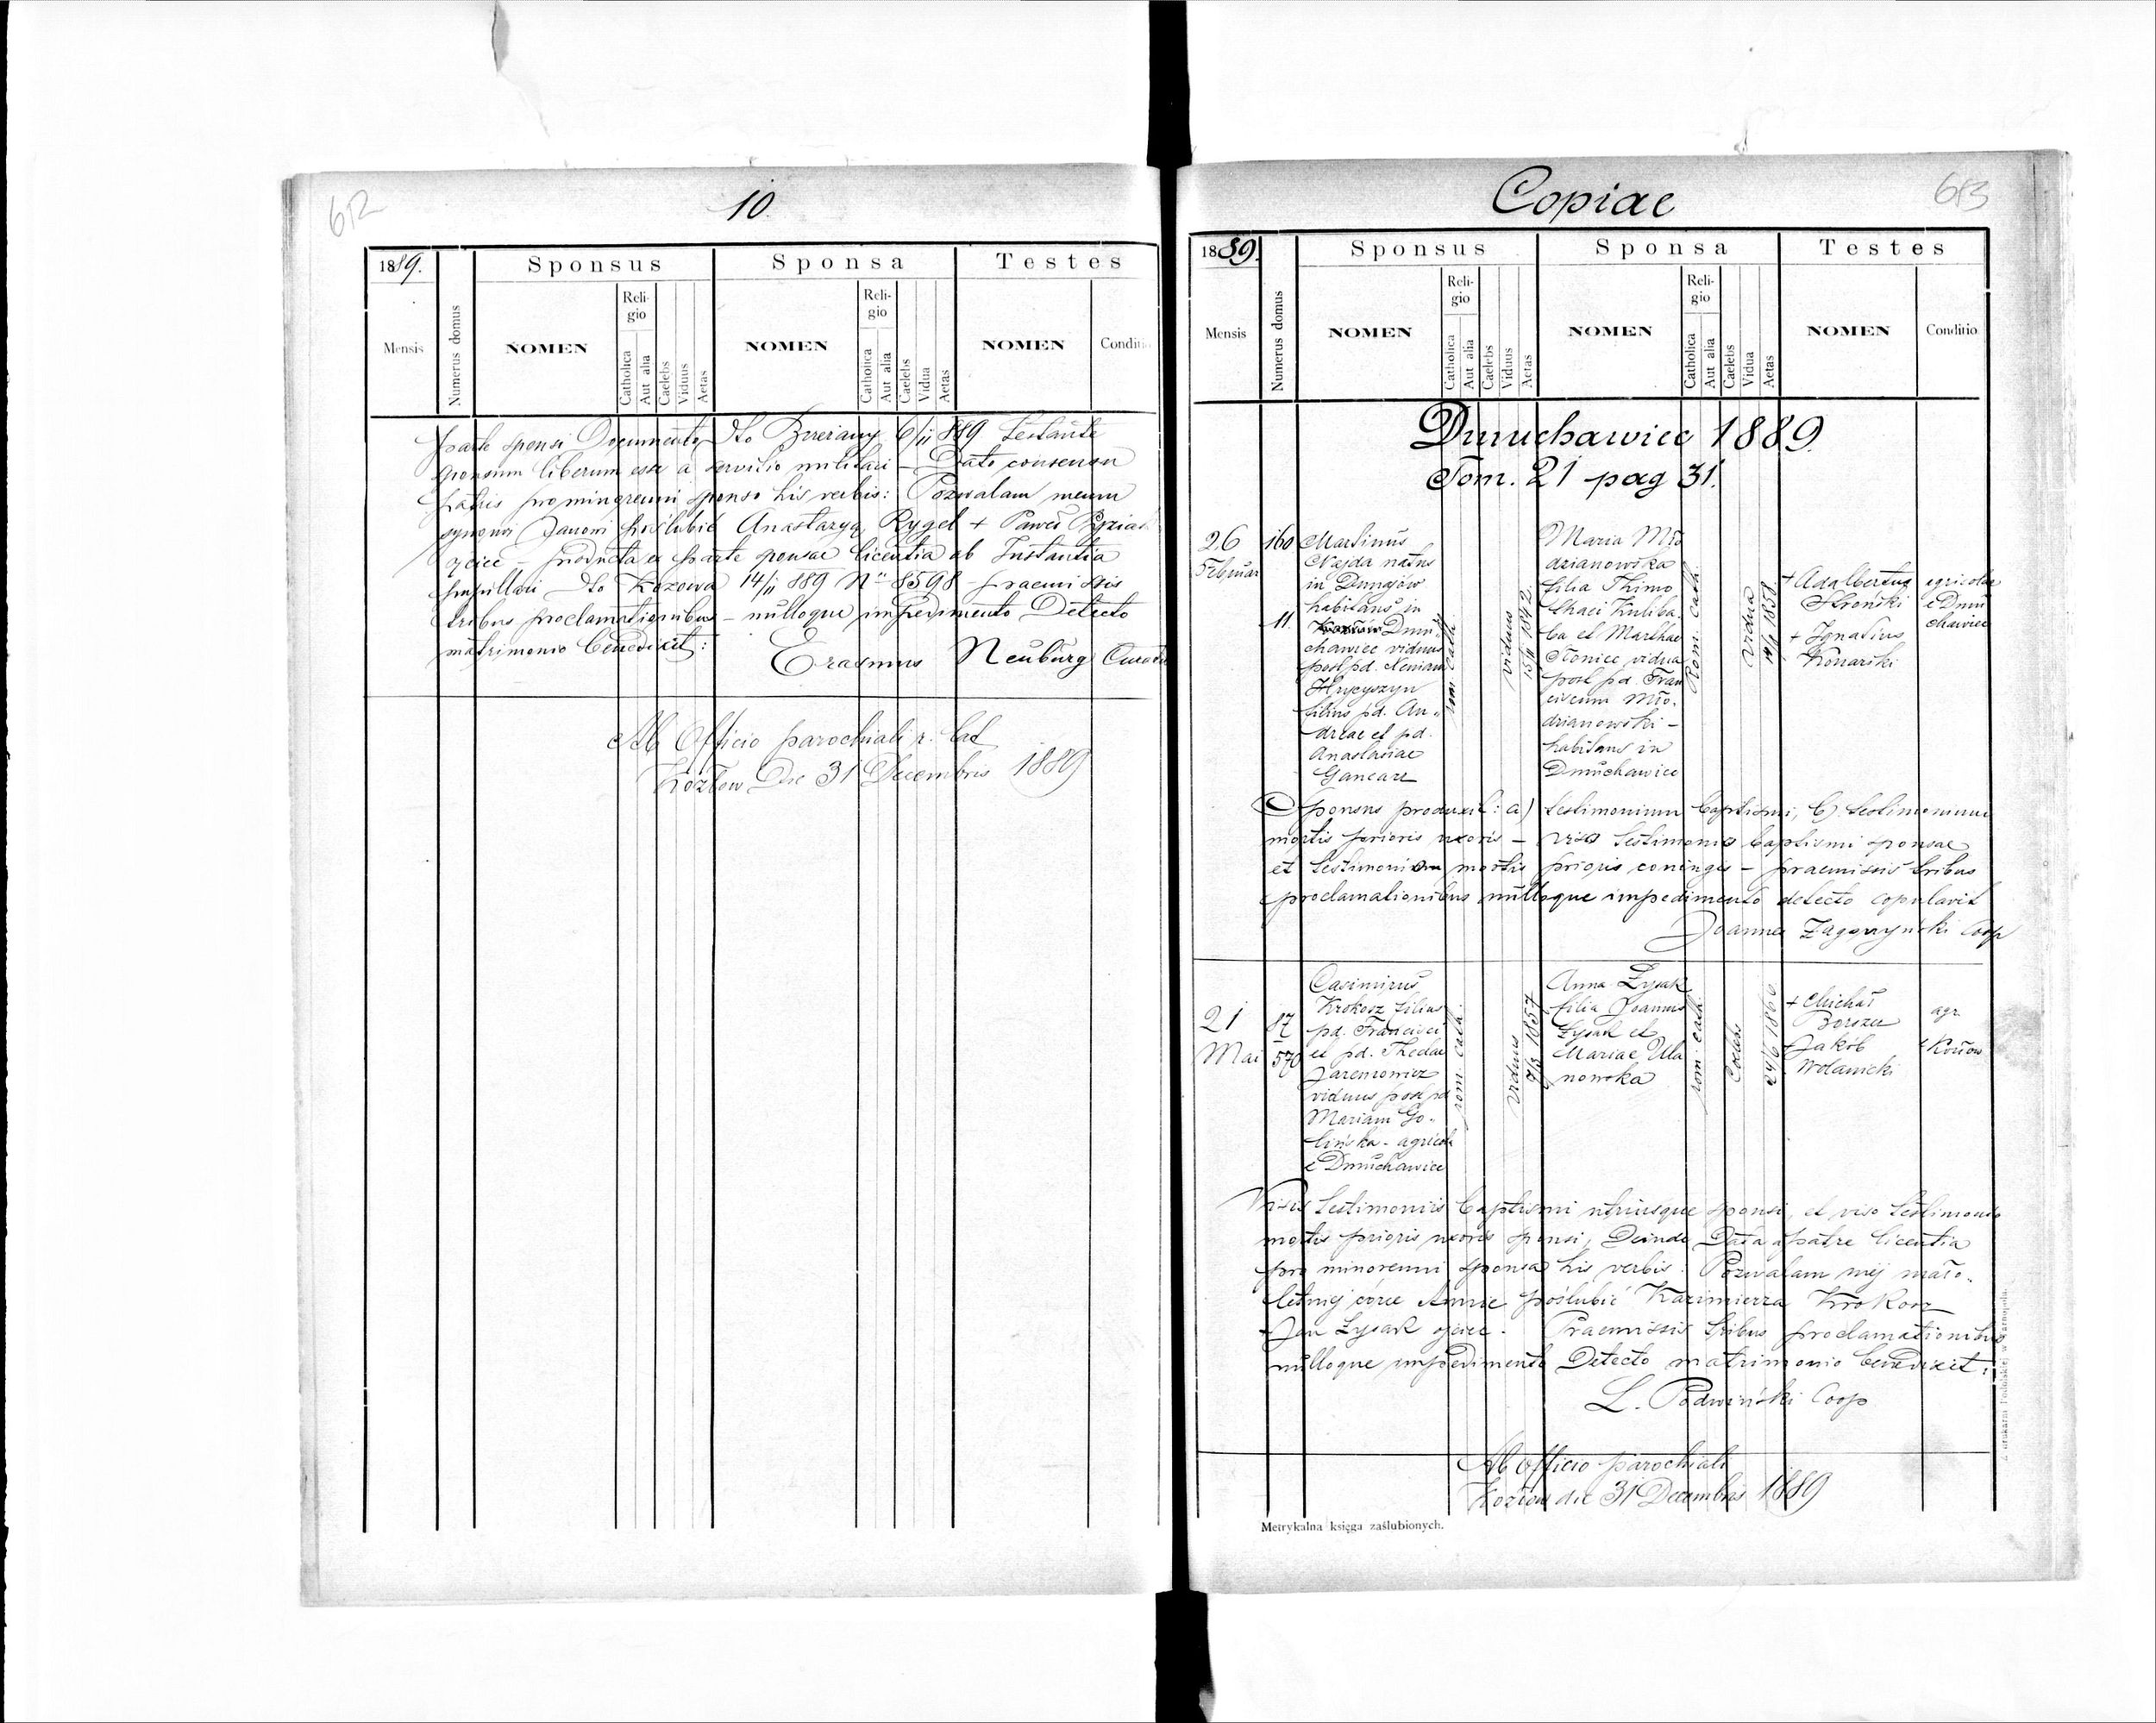 612
10
1889.
Sponsus
Sponsa
Testes
Mensis
Numerus domus
NOMEN
Religio
Catholica
Aut alia
Caelebs
Viduus
Aetas
NOMEN
Religio
Catholica
Aut alia
Caelebs
Vidua
Aetas
NOMEN
Conditio
parte sponsi Documento dto Brzeżany 6/11 889 testante
sponsum liberum esse a servitio militari – Dato consensu
patris pro minorenni sponso his verbis: Pozwalam memu
synowi Janowi poślubić Anastazyą Rygel + Paweł
ojciec – producta ex parte sponsae licentia ab Instantia
pupillari dto Kozowa 14/11 889 No 8598 – praemissis
tribus proclamationibus – nulloque impedimento Detecto
matrimonio benedixit:
Erasmus Neuburg
Ab Officio parochiali r. lat
Kozłow Die 31 Decembris 1889
Copiae
613
1889.
Sponsus
Sponsa
Testes
Mensis
Numerus domus
NOMEN
Religio
Catholica
Aut alia
Caelebs
Viduus
Aetas
NOMEN
Religio
Catholica
Aut alia
Caelebs
Vidua
Aetas
NOMEN
Conditio
Dmuchawiec 1889.
Tom. 21 pag 31.
26
Februar
160
11.
Martinus
Najda natus
in Dunajów
habitans in
Dmu
chawiec viduus
post pd.
Hrycyszyn
filius pd. An„
dreae et pd.
Anastasiae
Gancarz
rom. cath.
viduus
15/11 1842
Maria Mło
dzianowska
filia Thimo
thaei Kuliba
ba et Marthae
Stoniec vidua
post pd. Fran
ciscum Mło.
dzianowski –
habitans in
Dmuchawiec
Rom. Cath.
Vidua
1858
+ Adalbertus
Słroński
+ Ignatius
Konarski
agricolae
e Dmu
chawiec
Sponsus produxit: a) testimonium baptismi, b) testimonium
mortis prioris uxoris – viso testimonio baptismi sponsae
et testimonium mortis prioris coniugis – praemissis tribus
proclamationibus nulloque impedimento detecto copulavit
Joannes Zagorzyński Coop
21
Mai
87
570
Casimirus
Krokosz filius
pd. Francisci
et pd. Theclae
Jaremowicz
viduus post pd
Mariam Go-
lińska - agricola
e Dmuchawiec
rom. cath.
viduus
9/3 1857
Anna Łysak
filia Joannis
Łysak et
Mariae Ula
nowska
rom. cath.
Coelebs
24/6 1866
+ Michał
Borszcz
+ Jakób
Wolanicki
agr.
e Kozłow
Visis testimoniis baptismi utriusque sponsi, et viso testimonio
mortis prioris uxoris sponsi, Deinde Data a patre licentia
pro minorenni sponsa his verbis: Pozwalam mej mało.
letniej córce Annie poślubić Kazimierza Krokosz
+ Jan Łysak ojciec. Praemissis tribus proclamationibus
nulloque impedimento Detecto matrimonio benedixit:
L. Podwiński Coop
Ab officio parochiali
Kozłow die 31 Decembris 1889
Metrykalna księga zaślubionych.